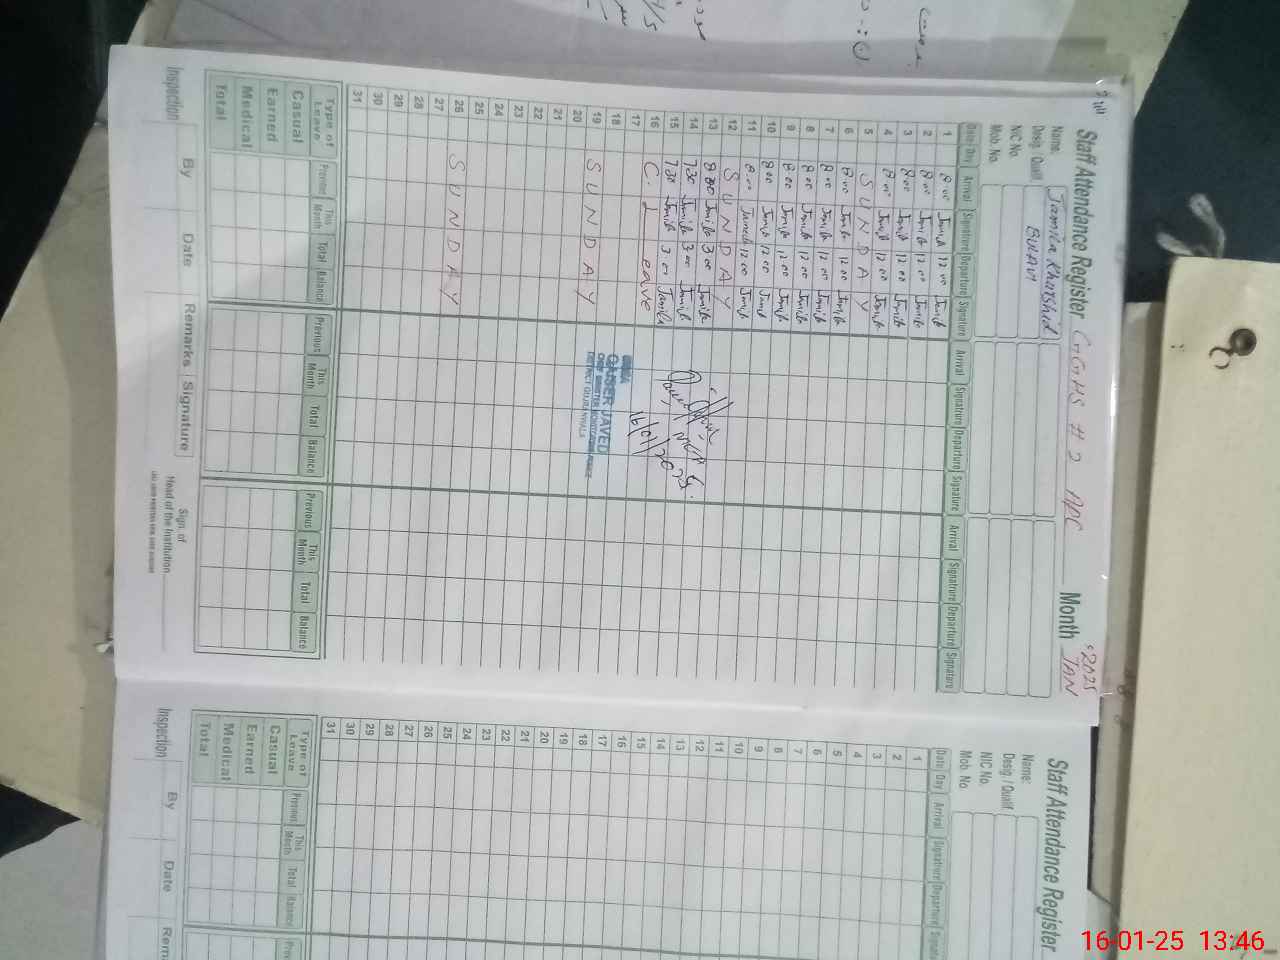 Staff Attendance Register GGHS # 2 APC Month JAN 2025
Name: Jamila Khurshid
Desig. / Qualif
NIC No.
Mob. No.
Date/Day Arrival Signature Departure Signature Arrival Signature Departure Signature Arrival Signature Departure Signature
1 8:00 Jamila 12 00 Jamila
2 8 00 Jamila 12 00 Jamila
3 8 00 Jamila 12 00 Jamila
4 8 00 Jamila 12 00 Jamila
5 S U N D A Y
6 8 00 Jamila 12 00 Jamila
7 8 00 Jamila 12 00 Jamila
8 8 00 Jamila 12 00 Jamila
9 8 00 Jamila 12 00 Jamila
10 8 00 Jamila 12 00 Jamila
11 8 00 Jamila 12 00 Jamila
12 S U N D A Y
13 8 30 Jamila 3 00 Jamila
14 7 30 Jamila 3 00 Jamila
15 7 30 Jamila 3 00 Jamila
16 C. Leave
17
18
19 S U N D A Y
20
21
22
23
24
25
26 S U N D A Y
27
28
29
30
31
16/01/2025
QAISER JAVED
DISTRICT GUJRANWALA
Type of Leave Previous This Month Total Balance Previous This Month Total Balance Previous This Month Total Balance
Casual
Earned
Medical
Total
Inspection By Date Remarks Signature Sign. of
Head of the Institution
Staff Attendance Register
Name:
Desig. / Qualif
NIC No.
Mob. No.
Date/Day Arrival Signature Departure
1
2
3
4
5
6
7
8
9
10
11
12
13
14
15
16
17
18
19
20
21
22
23
24
25
26
27
28
29
30
31
Type of Leave Previous This Month Total Balance
Casual
Earned
Medical
Total
Inspection By Date
16-01-25 13:46